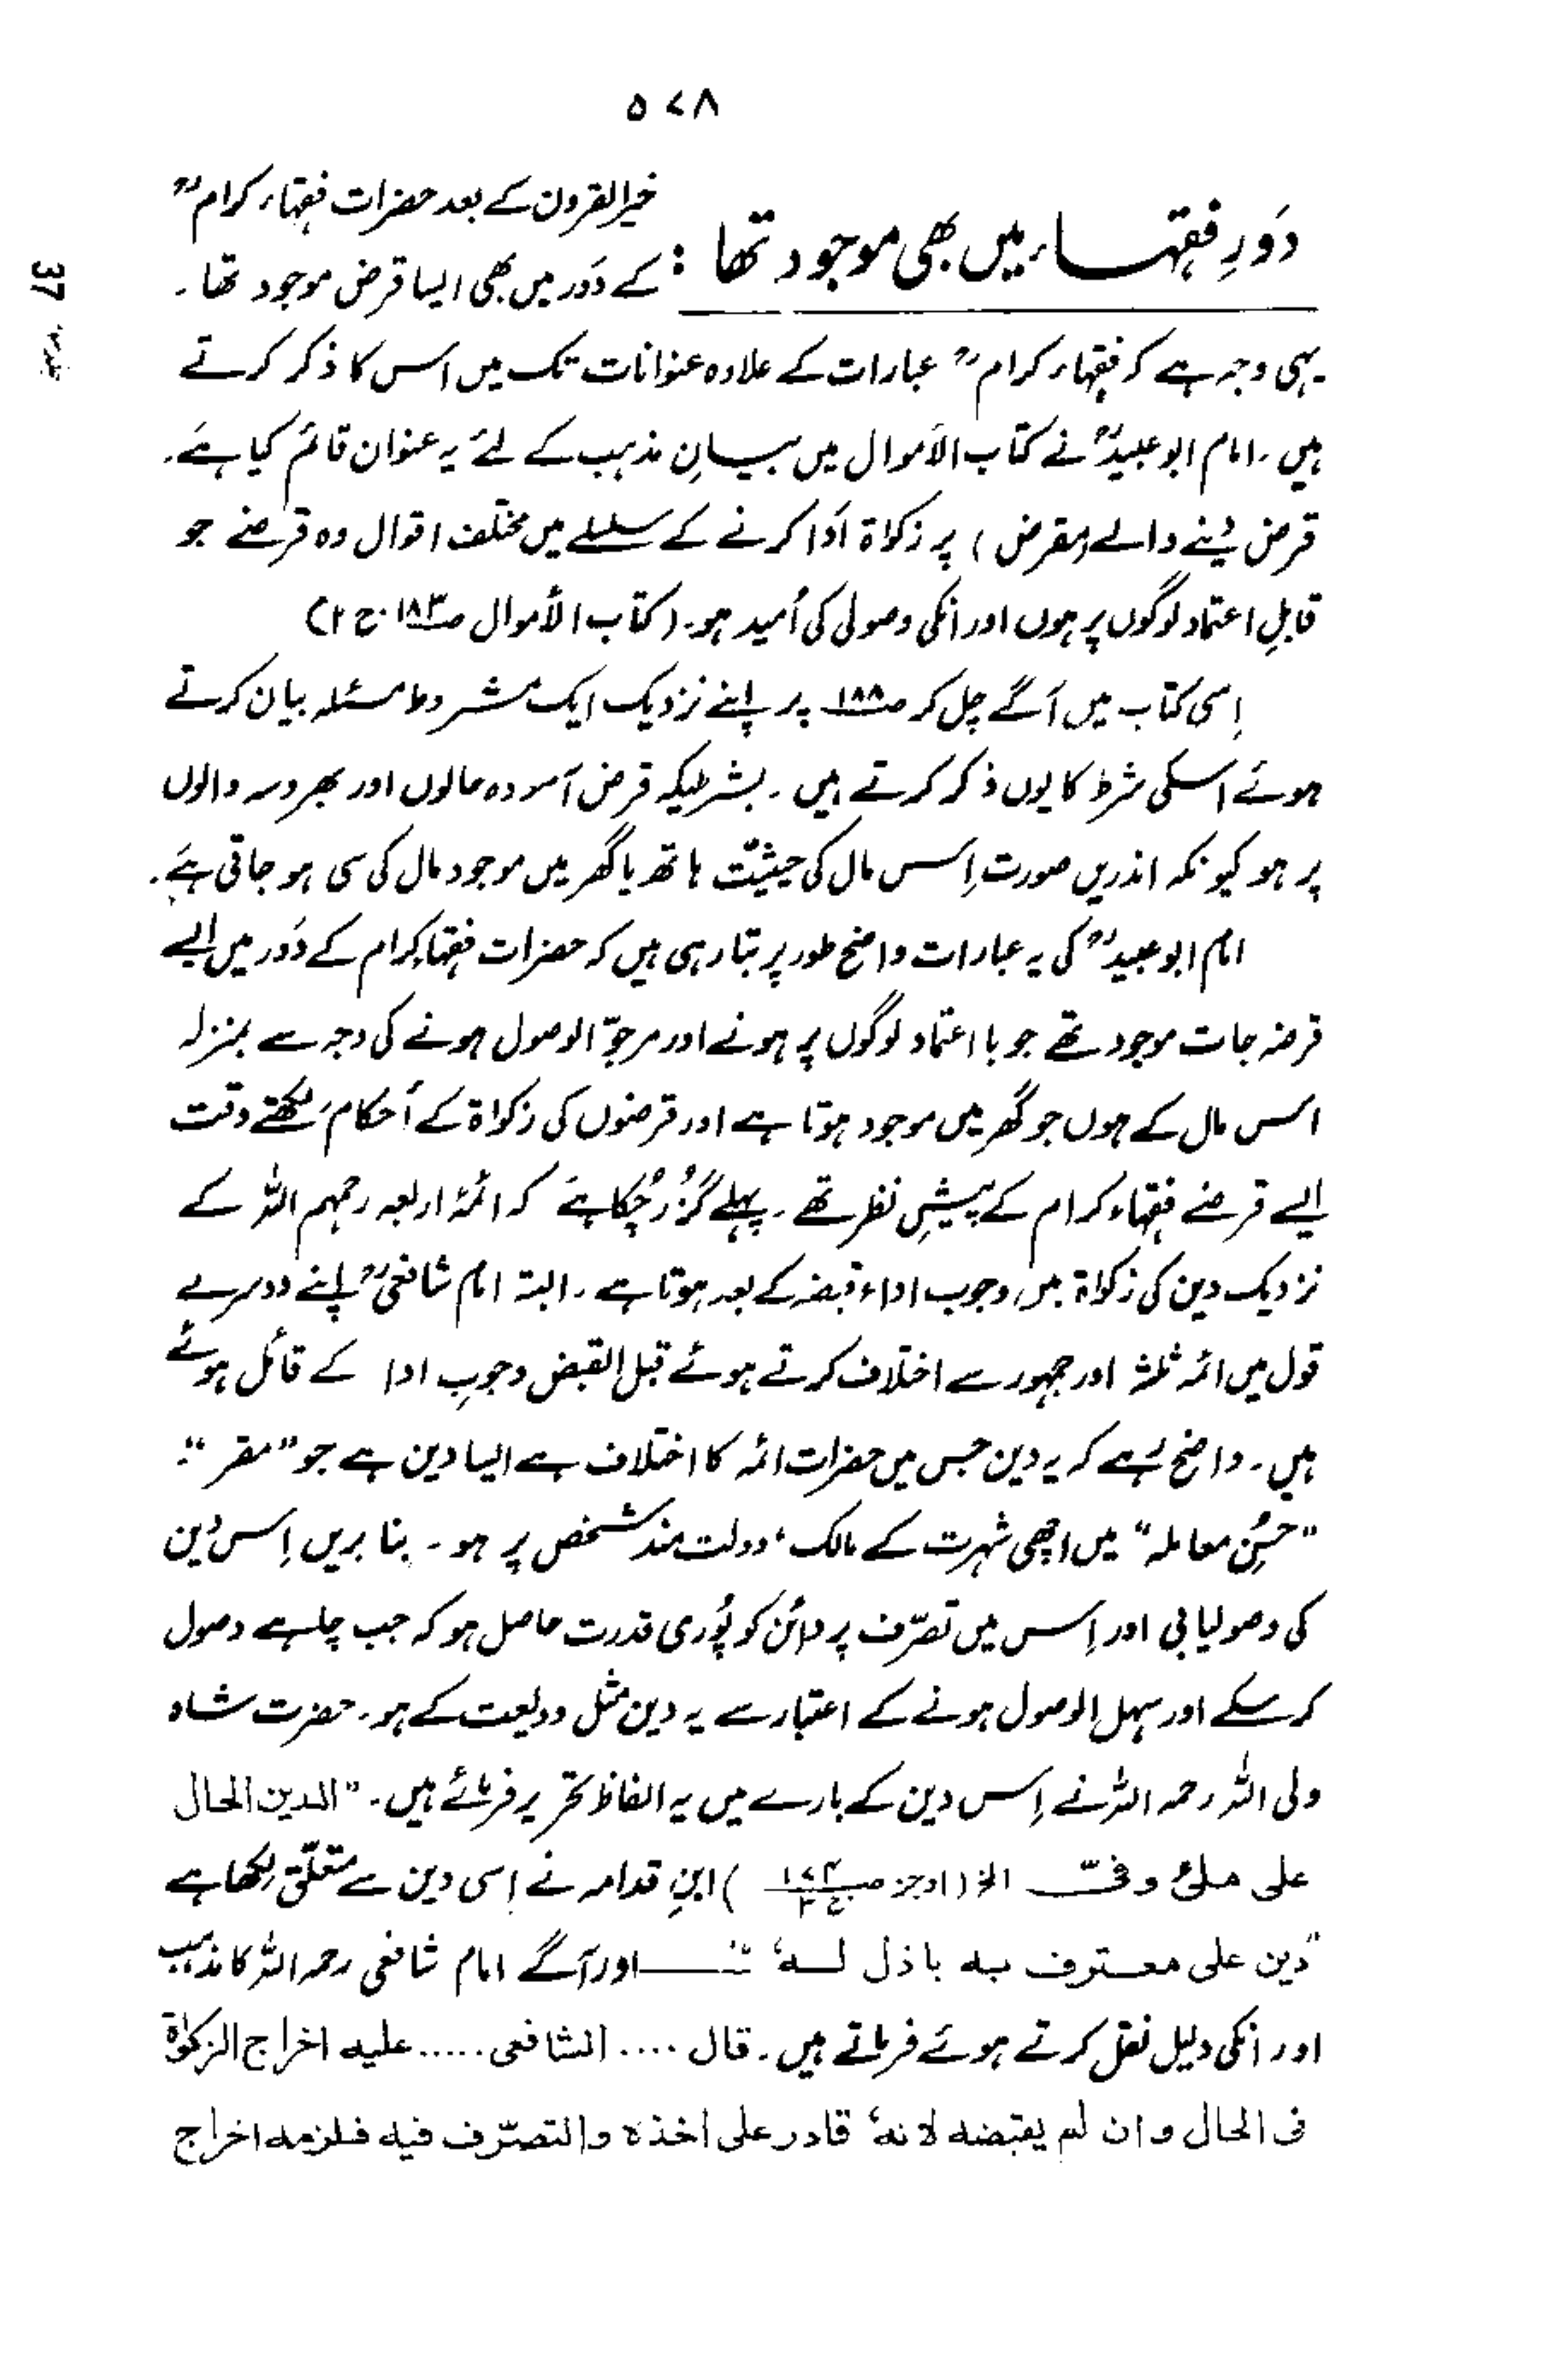 ۵۷۸
دَورِ فقہاء میں بھی موجود تھا :
خیر القرون کے بعد حضرات فقہاء کرامؒ
کے دَور میں بھی ایسا قرض موجود تھا۔
یہی وجہ ہے کہ فقہاء کرامؒ عبارات کے علاوہ عنوانات تک میں اس کا ذکر کرتے
ہیں۔ امام ابو عبیدؒ نے کتاب الأموال میں بیانِ مذہب کے لئے یہ عنوان قائم کیا ہے۔
قرض دینے والے (مقرض) پر زکواۃ اَدا کرنے کے سلسلے میں مختلف اقوال وہ قرضے جو
قابلِ اعتماد لوگوں پر ہوں اور انکی وصولی کی اُمید ہو۔ (کتاب الأموال صـ۱۸۳ ج ۲)
اِسی کتاب میں آگے چل کر صـ۱۸۸ پر اپنے نزدیک ایک مشروط مسئلہ بیان کرتے
ہوئے اسکی شرط کا یوں ذکر کرتے ہیں۔ بشرطیکہ قرض آسودہ حالوں اور بھروسہ والوں
پر ہو کیونکہ اندریں صورت اِس مال کی حیثیّت ہاتھ یا گھر میں موجود مال کی سی ہو جاتی ہے۔
امام ابو عبیدؒ کی یہ عبارات واضح طور پر بتا رہی ہیں کہ حضرات فقہاء کرام کے دَور میں ایسے
قرضہ جات موجود تھے جو با اعتماد لوگوں پر ہونے اور مرجوّ الوصول ہونے کی وجہ سے بمنزلہ
اس مال کے ہوں جو گھر میں موجود ہوتا ہے اور قرضوں کی زکواۃ کے أحکام لکھتے وقت
ایسے قرضے فقہاء کرام کے پیشِ نظر تھے۔ پہلے گزُر چُکا ہے کہ ائمۂ اربعہ رحمہم اللہ کے
نزدیک دین کی زکواۃ میں وجوب اداء قبضہ کے بعد ہوتا ہے۔ البتہ امام شافعیؒ اپنے دوسرے
قول میں ائمہ ثلثہ اور جمہور سے اختلاف کرتے ہوئے قبل القبض وجوبِ ادا کے قائل ہوئے
ہیں۔ واضح رہے کہ یہ دین جس میں حضرات ائمہ کا اختلاف ہے ایسا دین ہے جو "مقر"؛
"حسُنِ معاملہ" میں اچھی شہرت کے مالک، دولت مند شخص پر ہو۔ بنا بریں اِس دَین
کی وصولیابی اور اِس میں تصرّف پر دائن کو پُوری قدرت حاصل ہو کہ جب چاہے وصول
کر سکے اور سہل الوصول ہونے کے اعتبار سے یہ دین مثل ودیعت کے ہو۔ حضرت شاہ
ولی اللہ رحمہ اللہ نے اِس دین کے بارے میں یہ الفاظ تحریر فرمائے ہیں۔ "الدین الحال
علی ملئ وفی الخ (اوجز صـ ) ابنِ قدامہ نے اِسی دین سے متعلّق لکھا ہے
"دین علی معترف بہ باذل لہ، اور آگے امام شافعی رحمہ اللہ کا مذہب
اور انکی دلیل نقل کرتے ہوئے فرماتے ہیں۔ قال .... الشافعی..... علیہ اخراج الزکوٰۃ
فی الحال وان لم یقبضہ لانہ، قادر علی اخذہ والتصرّف فیہ فلزمہ اخراج
37